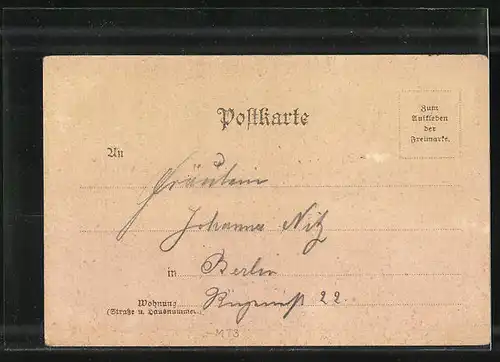 Postkarte
Zum
Aufkleben
der
Freimarke.
An
Fräulein
Johanna Nitz
in Berlin
Wohnung
(Straße u. Hausnummer)
22.
M T3